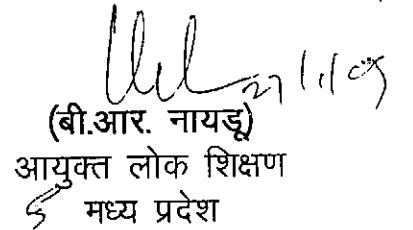 (बी.आर. नायडू)
आयुक्त लोक शिक्षण
मध्य प्रदेश